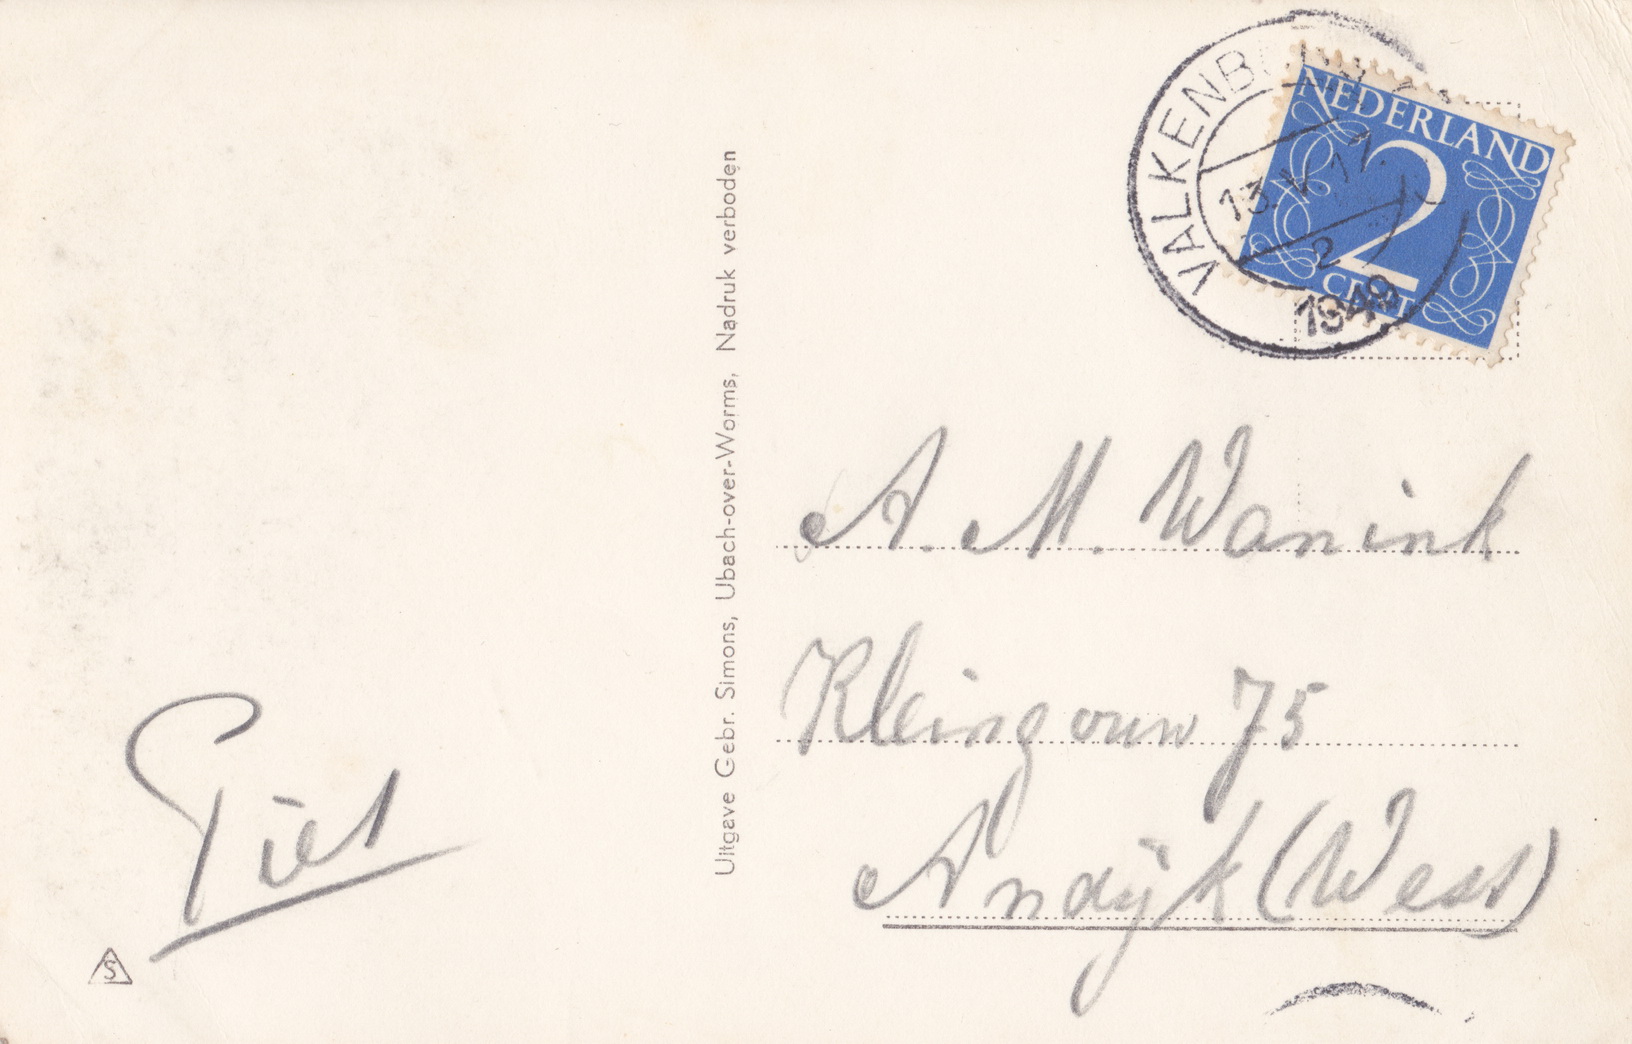 VALKENB
13. V 17.
2
1949
NEDERLAND
2
CENT
Uitgave Gebr. Simons, Ubach-over-Worms, Nadruk verboden
A. M. Wanink
Kleingouw 75
Andijk (West)
Piet
S